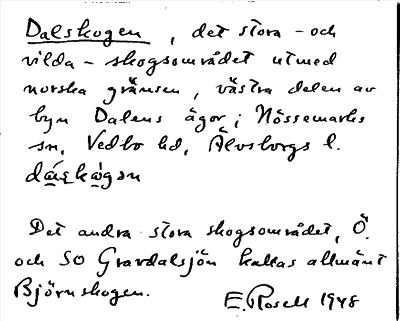 Dalskogen, det stora - och
vilda - skogsområdet utmed
norska gränsen, västra delen av
byn Dalens ägor i Nössemarks
sn, Vedbo hd, Älvsborgs l.
Det andra stora skogsområdet, Ö.
och SO Gravdalsjön kallas allmänt
Björnskogen.
E. Rosell 1948